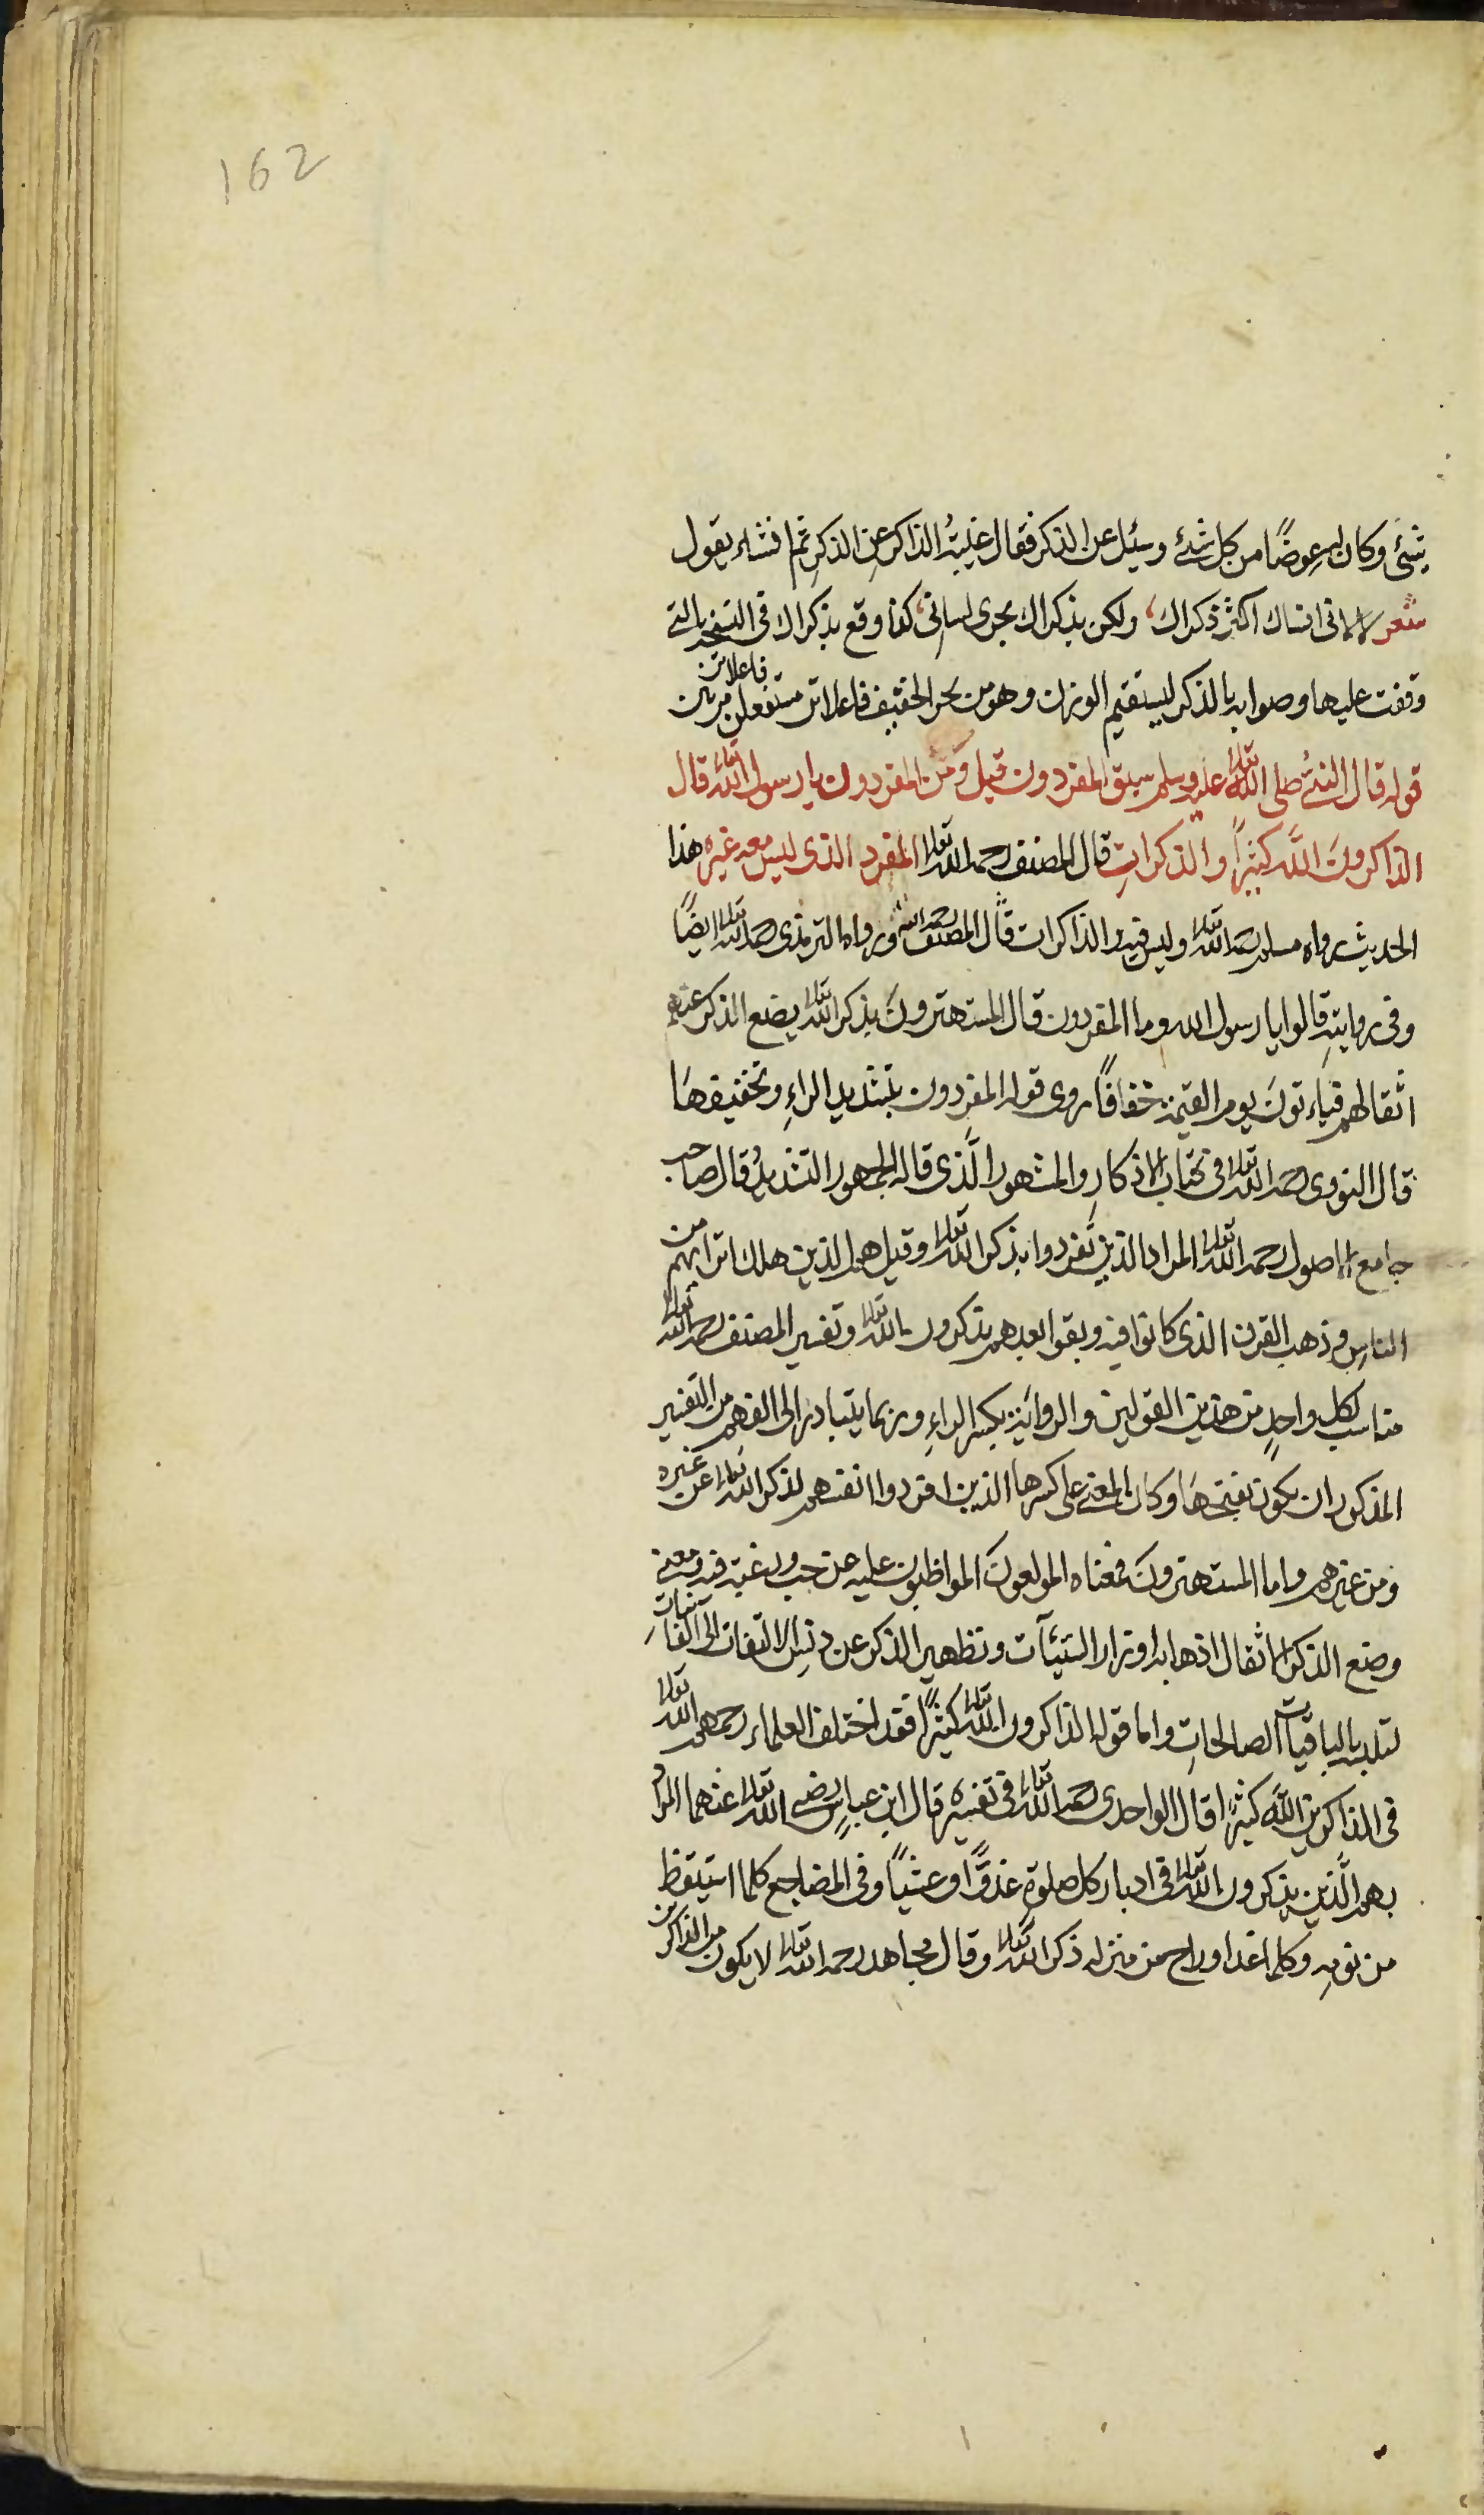 162
شئ وكان له عوضًا من كل شئ وسئل عن الذكر فقال غيبةُ الذاكر عن الذكر ثم انشاء يقول
شعر لا لانى انساك اكثر ذكراك، ولكن بذكراك يجرى لسانى، كذا وقع بذكراك فى النسخة التى
وقفت عليها وصوابه بالذكر ليستقيم الوزن وهو من بحر الخفيف فاعلاتن مستفعلن فاعلاتن مرتين
قوله قال النبيُّ صلى الله تعالى عليه وسلم سبق المفردون قيل ومَن المفردون يا رسول الله تعالى قال
الذاكرونَ اللهَ كثيرًا والذكراتِ قال المصنف رحمه الله تعالى المفرد الذى ليس معه غيره هذا
الحديث رواه مسلم رحمه الله تعالى وليس فيه والذاكرات قال المصنف رحمه الله ورواه الترمذى رحمه الله تعالى ايضًا
وفى روايةٍ قالوا يا رسول الله وما المفردون قال المستهترونَ بذكر الله تعالى يضع الذكر عنهم
اثقالهم فياءتونَ يوم القيمة خفافًا روى قوله المفردون بتشديد الراءِ وتخفيفهَا
قال النووى رحمه الله تعالى فى كتاب الاذكارِ والمشهور الَّذى قاله الجمهور التشديدُ قال صاحب
جامع الاصول رحمه الله تعالى المراد الذين تفردوا بذكر الله تعالى وقيل هم الذين هلك اترابهم من
الناسِ وذهب القرن الذى كانوا فيه وبقوا بعدهم يذكرون الله تعالى وتفسير المصنف رحمه الله تعالى
مناسب لكل واحدٍ من هذين القولين والرواية بكسر الراءِ وربما يتبادر الى الفهم من التفسير
المذكور ان يكون بفتحهَا وكان المعنى على كسرها الذين افردوا انفسهم لذكر الله تعالى عن غيره
ومن غيرهم واما المستهترونَ فمعناه المولعونَ المواظبون عليه عن حب ورغبة فيه ومعنى
وضع الذكر الاثقال اذهابه اوزار السيّئآت وتطهير الذكر عن دنسِ الالتفات الى الفانيات
لتلبسه بالباقيات الصالحاتِ واما قوله الذاكرون الله تعالى كثيرًا فقد اختلف العلماء رحمهم الله تعالى
فى الذاكرين اللهَ كثيرًا قال الواحدى رحمه الله تعالى فى تفسيره قال ابن عباسٍ رضى الله تعالى عنهما المراد
بهم الَّذين يذكرون الله تعالى فى ادبار كل صلوةٍ غدوًّا وعشيًا وفى المضاجع كلما استيقظ
من نومهِ وكلما غدا وراح من منزله ذكر الله تعالى وقال مجاهد رحمه الله تعالى لا يكون من الذاكرين